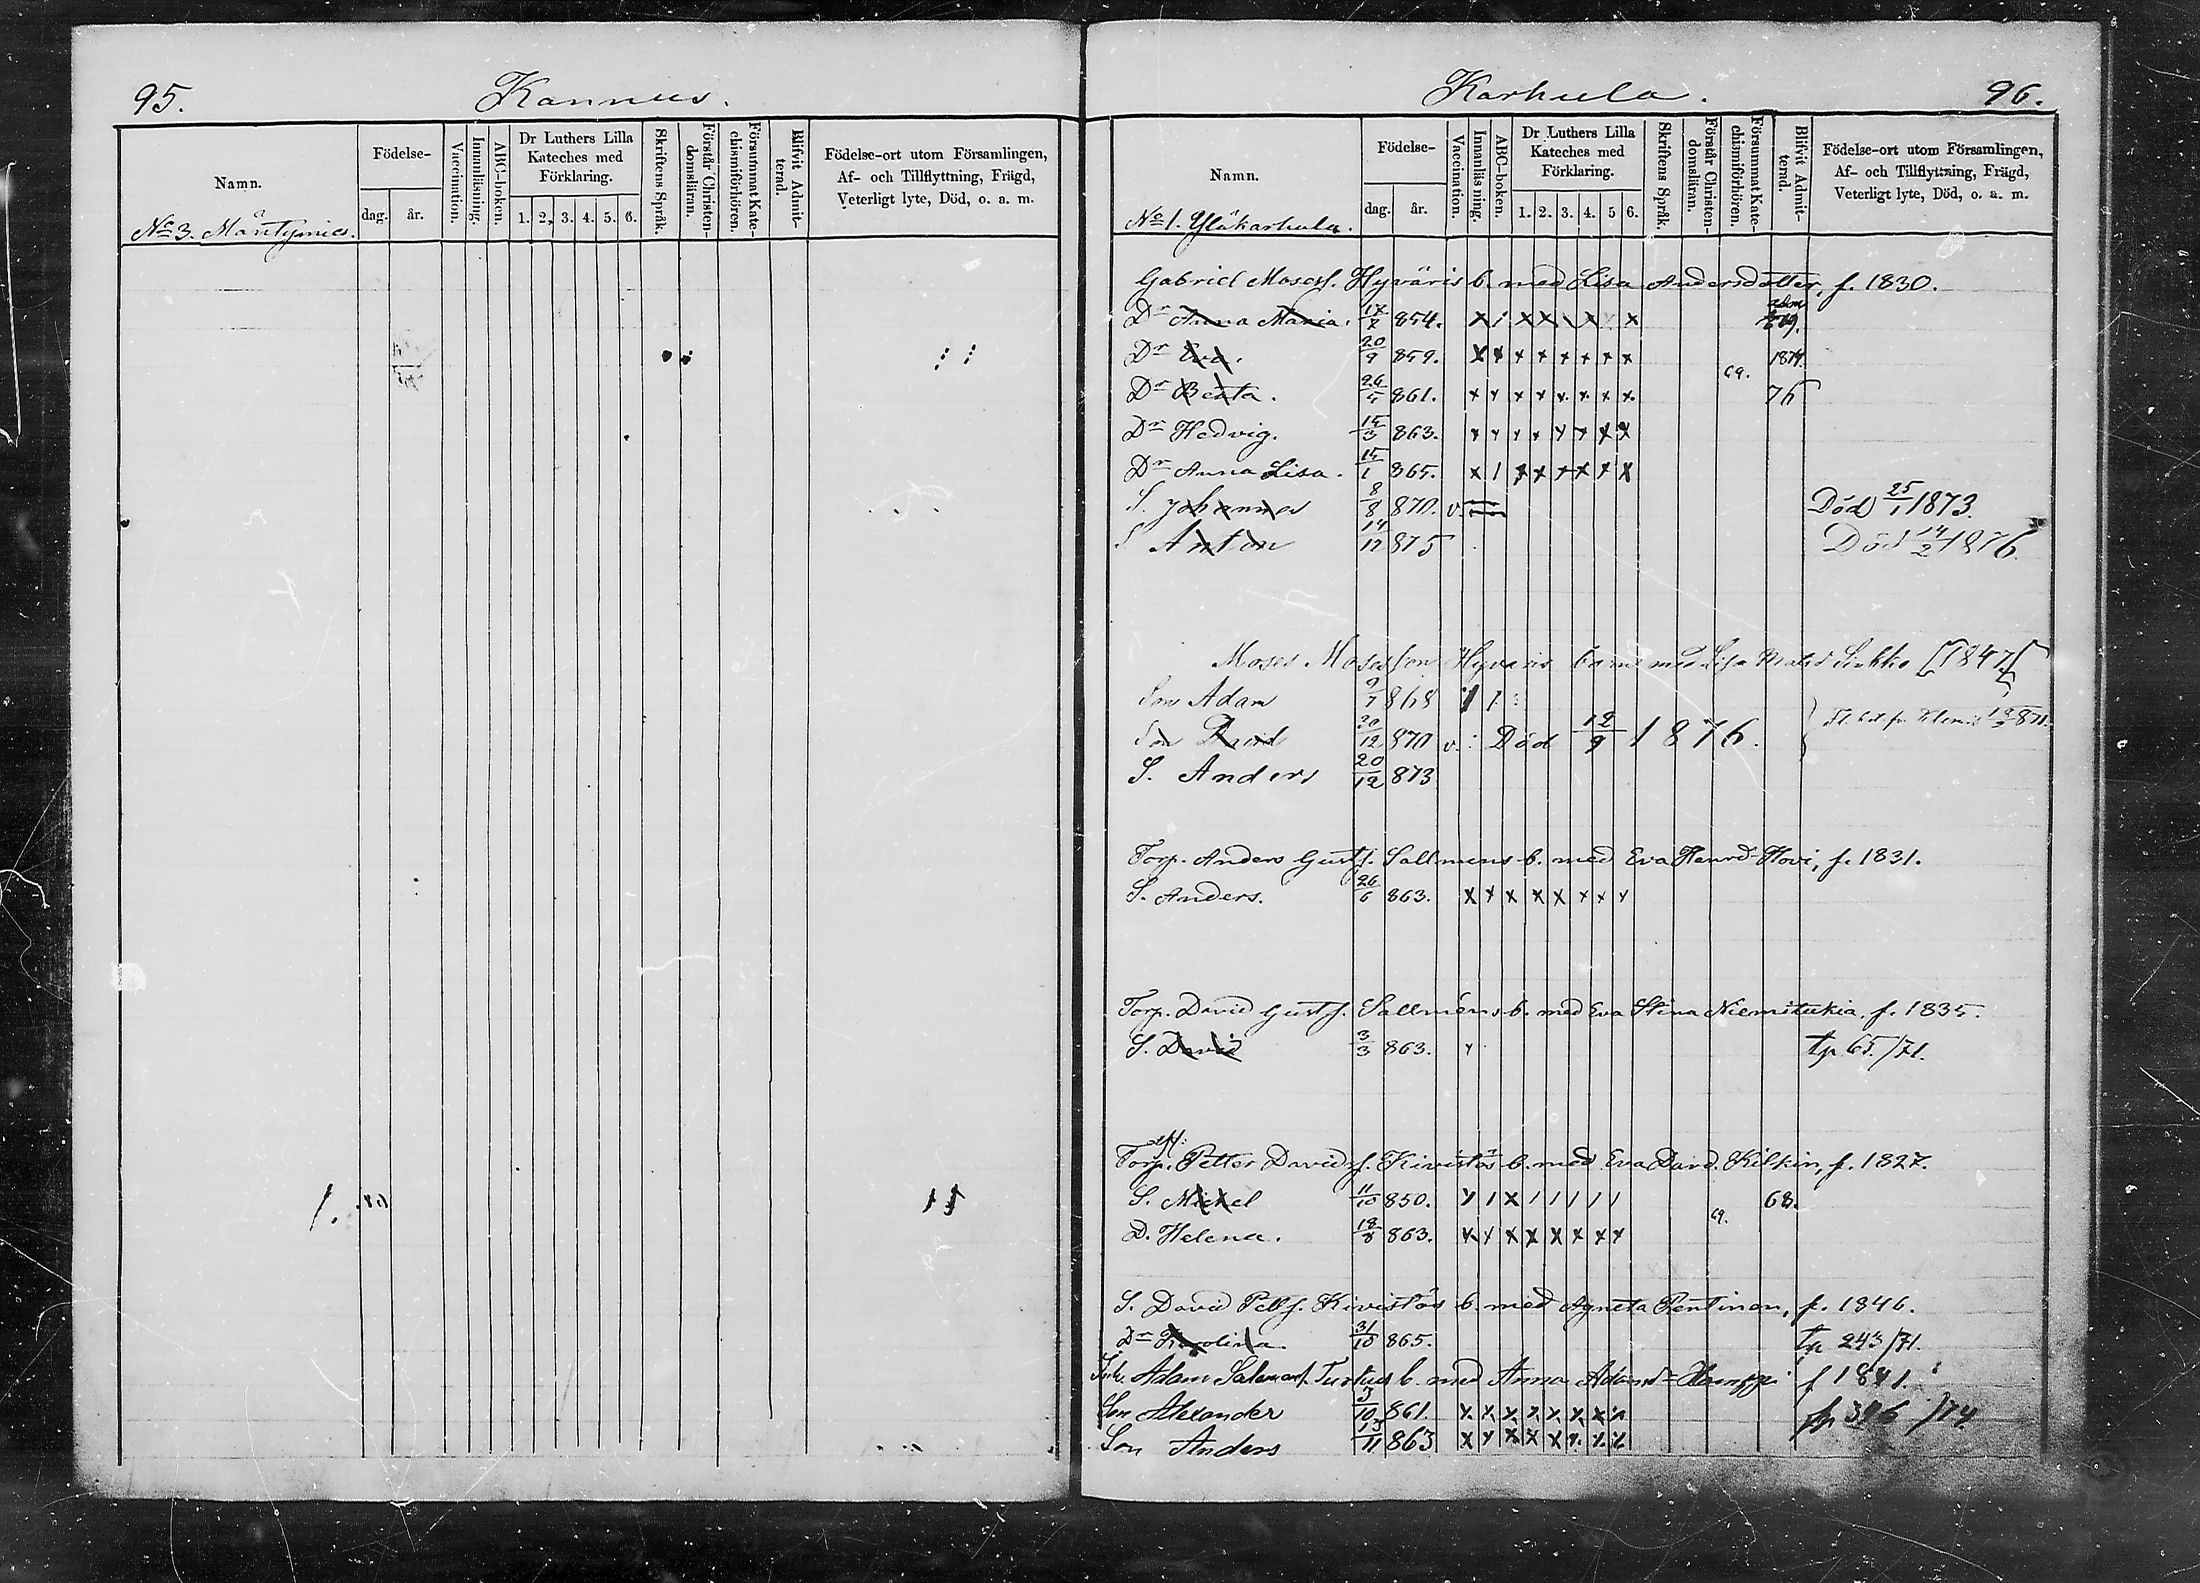 95.
Kannus.
Namn.
Födelse-
dag. år.
Vaccination.
Innanläsning.
ABC-boken.
Dr Luthers Lilla Kateches med Förklaring.
1. 2. 3. 4. 5. 6.
Skriftens Språk.
Förstår Christendomsläran.
Försummat Katechismiförhören.
Blifvit Admitterad.
Födelse-ort utom Församlingen,
Af- och Tillflyttning, Frägd,
Veterligt lyte, Död, o. a. m.
No 3. Mäntymies.
Karhula.
96.
Namn.
Födelse-
dag. år.
Vaccination.
Innanläsning.
ABC-boken.
Dr Luthers Lilla Kateches med Förklaring.
1. 2. 3. 4. 5 6.
Skriftens Språk.
Förstår Christen-domsläran.
Försummat Kate-chismiförhören.
Blifvit Admit-terad.
Födelse-ort utom Församlingen,
Af- och Tillflyttning, Frägd,
Veterligt lyte, Död, o. a. m.
No 1. Yläkarhula.
Gabriel Mosesf. Hyväris b. med Lisa Andersdotter, f. 1830.
Dr Anna Maria. 17/7 854. x i x x \ x x 69.
Dr Eva. 20/9 859. x x x x x x x x 1874.
Dr Beata. 26/5 861. x x x x x x x x 69. 76
Dr Hedvig. 14/3 863. x x x x x x x x
Dr Anna Lisa. 15/1 865. x 1 x x x x x x
S. Johannes 8/8 870. v. Död 25/1 1873.
S Anton 14/12 875 Död 14/2 1876.
Moses Mosesson Hyväris barn med Lisa Sinkko [1847]
Son Adam 9/7 868
Son David 30/12 870 v. Död 12/9 1876.
S. Anders 20/12 873
Torp. Anders Gustf. Sallmens b. med Eva Henrd. Hovi, f. 1831.
S. Anders. 26/6 863. x x x x x x x x
Torp. David Gustf. Sallmens b. med Eva Stina Niemitukia, f. 1835.
S. David 3/3 863. x tp 65./71.
Torp. Petter Davidsf. Kivistös b. med Eva David. Kilkin, f. 1827.
S. Mickel 11/10 850. x 1 x 1 1 1 1 1 68.
D. Helena. 18/8 863. x x x x x x x x 69.
S. David Pettf. Kivistös b. med Agneta Pentinen, f. 1846.
Dr Karolina. 31/10 865. tp 243/71.
Inh. Adam Salomonf. Turkus b. med Anna Adamsd. f 1841.
Son Alexander 3/10 861. x x x x x x x x
Son Anders 13/11 863 x x x x x x x x